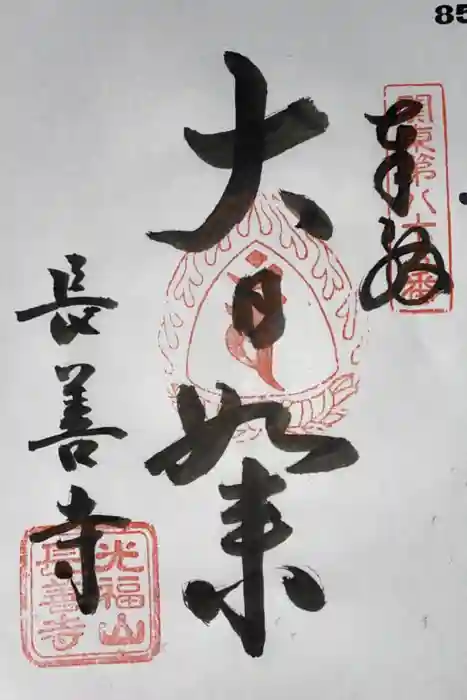 85
奉拝
関東第八十五番
大日如来
長善寺
光福山
長善寺